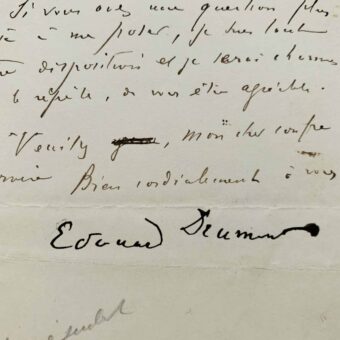 Si vous avez une question plus
à me poser, je suis tout
disposition et je serai charmé
le répète, de vous être agréable.
Veuillez, mon cher confre
Bien cordialement à vous
Edouard Drumont